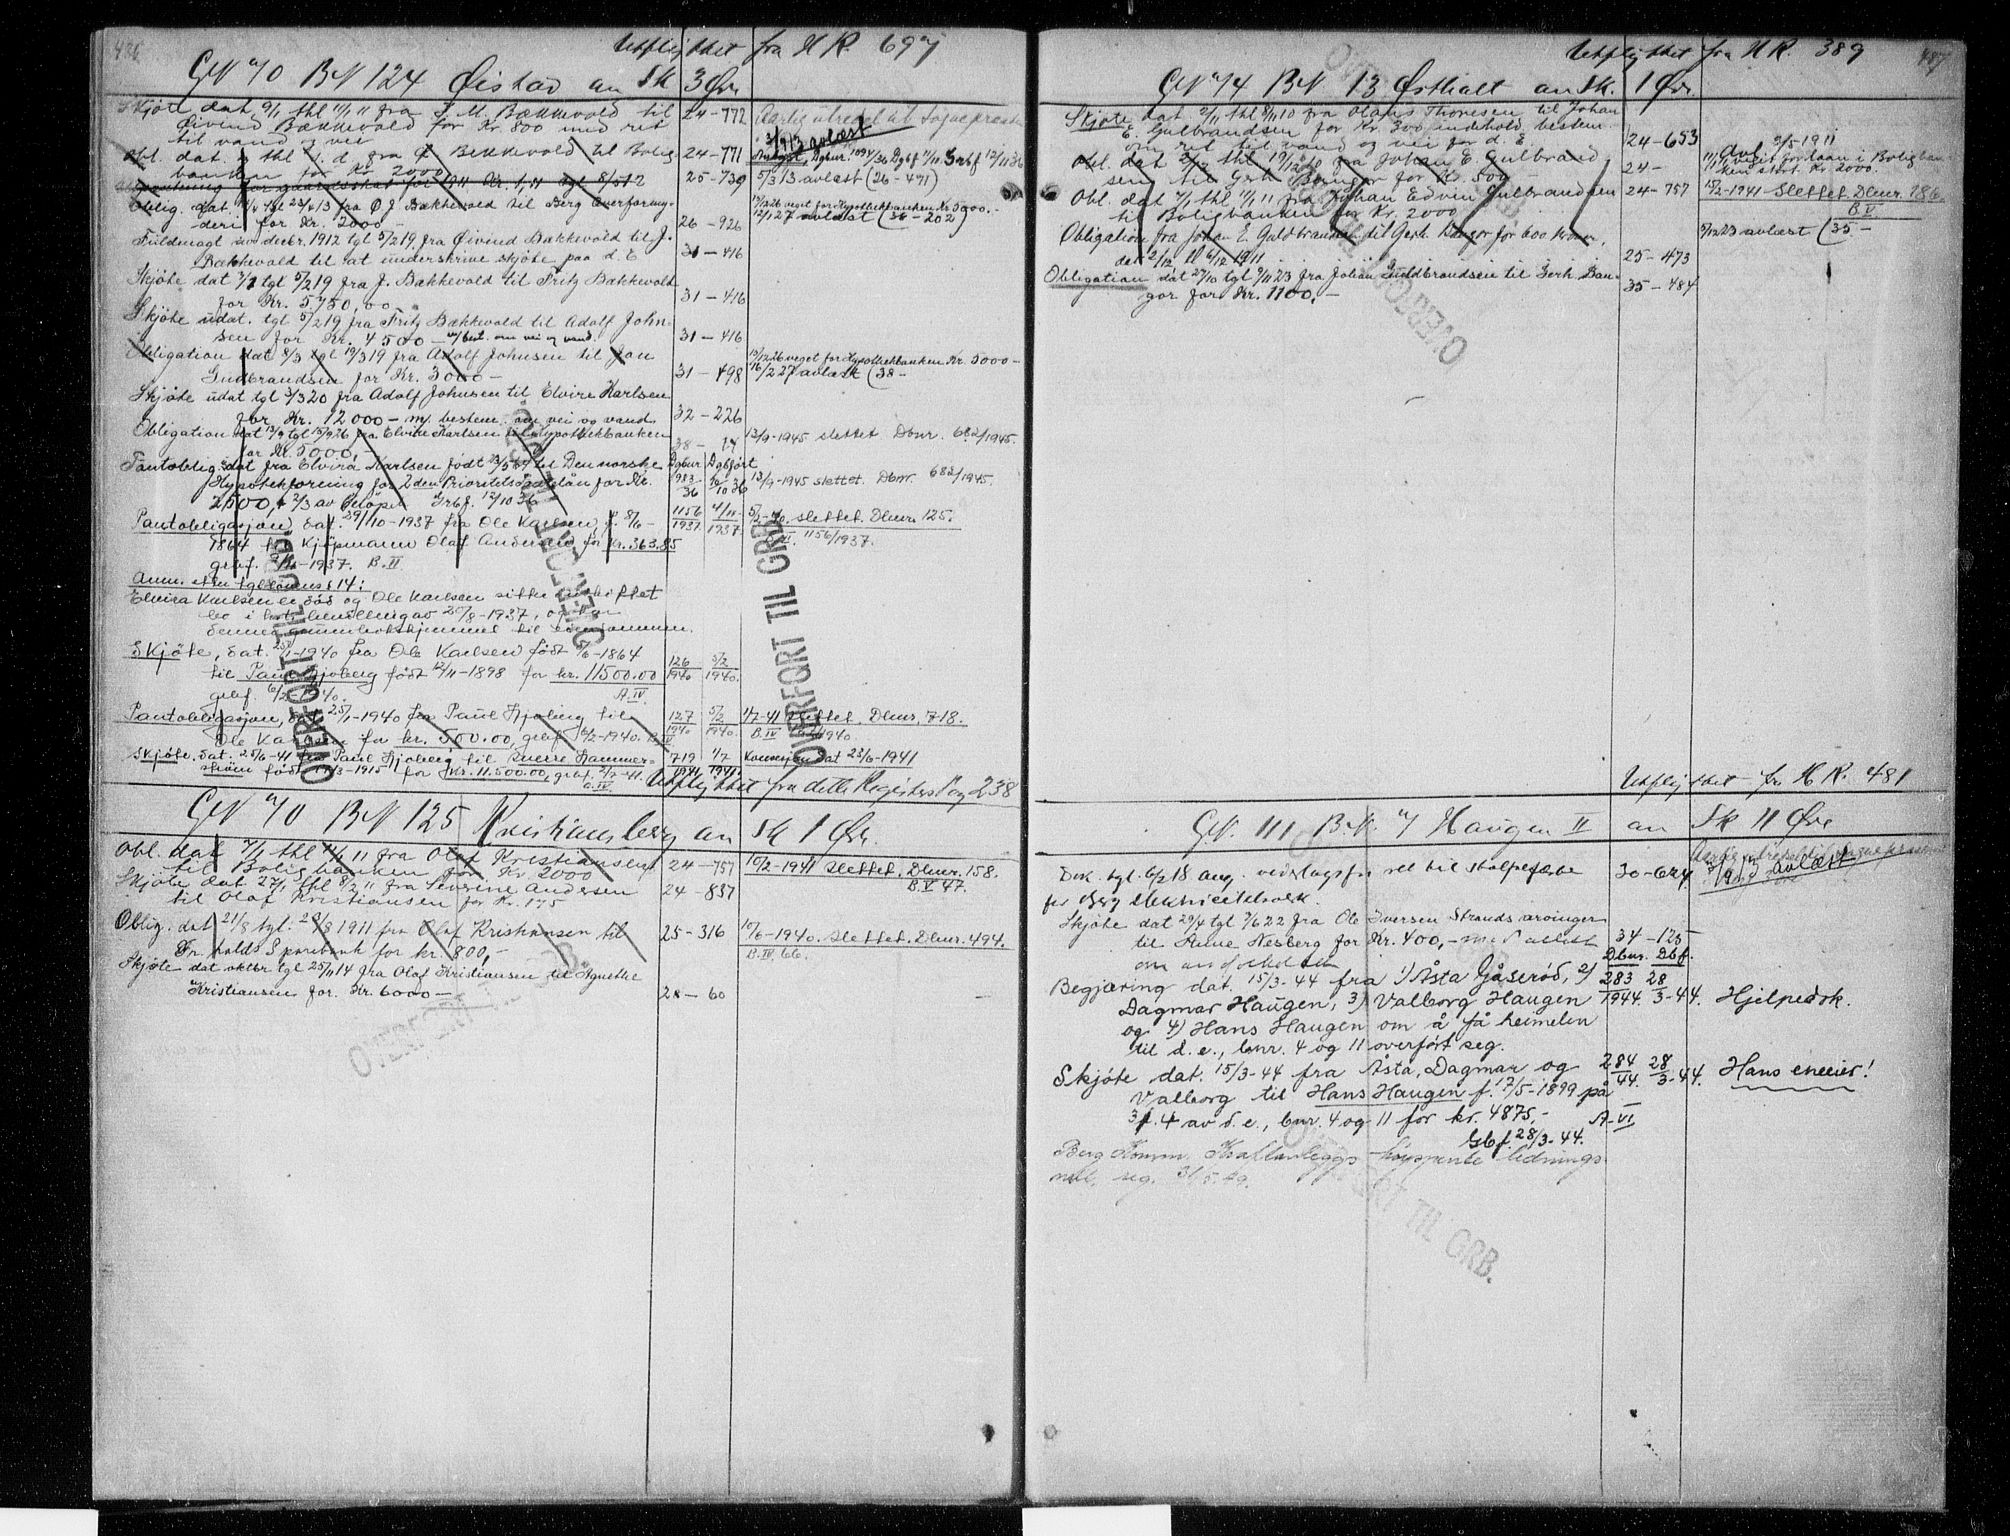 436
Utflyttet fra H R. 697
GN 70 BN 124 Øistad an Sk 3 Øre
Skjøte dat 9/1 thl 11/1 11 fra J. M. Bækkevold til 24-772
Øivind Bækkevold for Kr. 800 med ret
til vand og vei
Obl. dat. thl s. d. fra Ø Bekkevold til Bolig- 24-771
banken for Kr 2000
for 1911 Kr. 1,11 tgl 8/5 12 25-739 5/3 13 avlæst (26-471)
Oblig. dat tgl 23/4 13 fra Ø J. Bækkevold til Berg Overformyn-
deri for Kr. 2000 26-926 12/1 27 avlæst (36-202)
Fuldmagt av decbr. 1912 tgl 5/2 19 fra Øivind Bakkevold til J.
Bakkevold til at underskrive skjøte paa d. E 31-416
Skjøte dat 3/2 tgl 5/2 19 fra J. Bakkevold til Fritz Bakkevold
for Kr. 5750,00 31-416
Skjøte udat. tgl 5/2 19 fra Fritz Bakkevold til Adolf John-
sen for Kr. 4500 - m/best. om vei og vand. 31-416
Obligation dat 8/3 tgl 19/3 19 fra Adolf Johnsen til Jon
Gudbrandsen for Kr. 3000 - 31-498
veget for Hypothekbanken Kr. 5000 -
16/2 27 avlæst (38-
Skjøte udat tgl 3/3 20 fra Adolf Johnsen til Elvire Karlsen
for Kr. 12000 - m/ bestem. om vei og vand. 32-226
Obligation dat 13/9 tgl 15/9 26 fra Elvire Karlsen til Hypothekbanken
for Kr. 5000,- 38-14 13/9-1945 slettet Dbnr. 682/1945.
Pantoblig. dat fra Elvira Karlsen født til Den norske Dgbnr Dgbført
Hypotekforening for 2den Prioritets lån for Kr. 983/36 36 13/9-1945 slettet. Dbnr. 683/1945.
2500,+ 2/3 av beløpet Grbf. 12/10 36
Pantobligasjon dat. 29/10-1937 fra Ole Karlsen f. 8/6- 1156/1937 4/11-1937 slettet. Dbnr. 125.
1864 til Kjøpmann Olaf Andersen for kr. 363.85 1156/1937.
grbf. -1937. B. II
Anm. etter tgl.lovens § 14:
Elvira Karlsen er død og Ole Karlsen sitter i uskiftet
bo i h.t. bevilling av 25/8-1937,
denne
Skjøte, dat. 25/1-1940 fra Ole Karlsen født 8/6-1864
til Paul Hjoberg født 12/11-1898 for kr. 11500.00 126/1940 5/2 1940.
grbf. 6/2-1940. A. IV
Pantobligasjon, dat. 25/1-1940 fra Paul Hjoberg til 127/1940 5/2 1940. 1/7-41 slettet. Dbnr. 718.
Ole Karlsen for kr. 500.00, grbf. 6/2-1940. B. IV
Skjøte, dat. 25/6-41 fra Paul Hjoberg til Sverre Hammer- 719/1941 1/7 1941. Konsesjon dat 23/6-1941
strøm født -1915 for Kr. 11.500.00, grbf. 2/7-41. A. IV
OVERFØRT TIL GRB.
OVERFØRT TIL GRB.
OVERFØRT TIL GRB.
Utflyttet fra dette Register Pag 238
GN 70 BN 125 Kristiansberg an Sk 1 Øre.
Obl. dat 7/1 thl 11/1 11 fra Olaf Kristiansen 24-757 10/2-1941 slettet. Dbnr. 158.
til Boligbanken for Kr. 2000 B. V 47.
Skjøte dat 27/1 thl 8/2 11 fra Severine Andersen 24-837
til Olaf Kristiansen for Kr. 175
Oblig. dat 21/8 tgl. 28/8 1911 fra Olaf Kristiansen til 25-316 10/6-1940. slettet. Dbnr. 494.
Fr. halds Sparebank for kr. 800,- B. IV 66.
Skjøte dat oktbr tgl 25/11 14 fra Olaf Kristiansen til Agnethe
Kristiansen for. Kr. 6000 - 28-60
OVERFØRT TIL GRB.
437
Utflyttet fra H R. 389
GN 74 BN 13 Østhalt an Sk. 1 Øre
Skjøte dat 2/11 thl 8/11 10 fra Olaus Thoresen til Johan
E. Gulbrandsen for Kr. 300 indehold. bestem. 24-653
om ret til vand og vei for d. E.
Obl. dat thl 19/12 10 fra Johan E. Gulbrand- 24- Avl 9/5 1911
sen til Gerh Bangor for Kr. 500
veget for laan i Boligban-
ken stort. Kr 2000.
Obl. dat 7/1 thl 11/1 11 fra Johan Edvin Gulbrandsen 24-757 15/2-1941 Slettet Dbnr. 186.
til Boligbanken for Kr. 2000 B. V
Obligation fra Johan E. Guldbrandsen til Gerh. Bangor for 600 kroner, avlæst (35-
dat 2/12 tl 6/12 1911 25-473
Obligation dat 27/10 tgl 9/11 23 fra Johan Guldbrandsen til Gerh. Ban-
gor for Kr. 1100,- 35-484
OVERFØRT TIL GRB.
Utflyttet fra H R. 481
GN. 111 BN. 7 Haugen II an Sk 11 Øre
Dok. tgl. 6/2 18 ang. vederlagsfri ret til stolpefæste 30-624 avlæst
for Berg Elektricitetsverk.
Skjøte dat 29/4 tgl 7/6 22 fra Ole Iversen Strands arvinger
til Anne Nesberg for Kr. 400,- med attest 34-125
Dbnr. Dbf.
Begjæring dat. 15/3-44 fra 1) Åsta Gåserød, 2) 283/1944. 28/3-44. Hjelpedok.
Dagmar Haugen, 3) Valborg Haugen
og 4) Hans Haugen om å få heimelen
til d. e., bnr. 4 og 11 overført seg.
Skjøte dat. 15/3-44 fra Åsta, Dagmar og 284/44. 28/3-44. Hans eneeier!
Valborg til Hans Haugen f. 17/5-1899 på
3/4 av d. e., bnr. 4 og 11 for kr. 4875,- A-VI
Gbf. 28/3-44.
Berg Komm. Kraftanleggs høyspente lednings-
nett, reg. 31/5.49.
OVERFØRT TIL GRB.